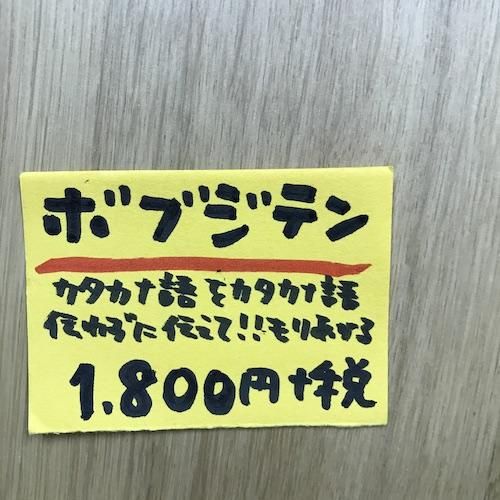 ボブジテン
カタカナ語をカタカナ語
伝わずに伝えて!!もりあげる
1.800円+税